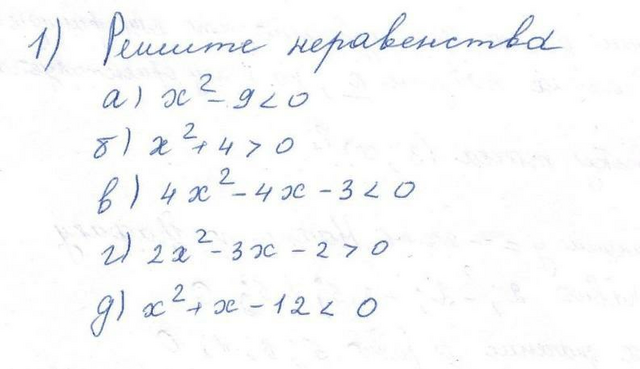 1) Решите неравенства
а) x² - 9 < 0
б) x² + 4 > 0
в) 4x² - 4x - 3 < 0
г) 2x² - 3x - 2 > 0
д) x² + x - 12 < 0